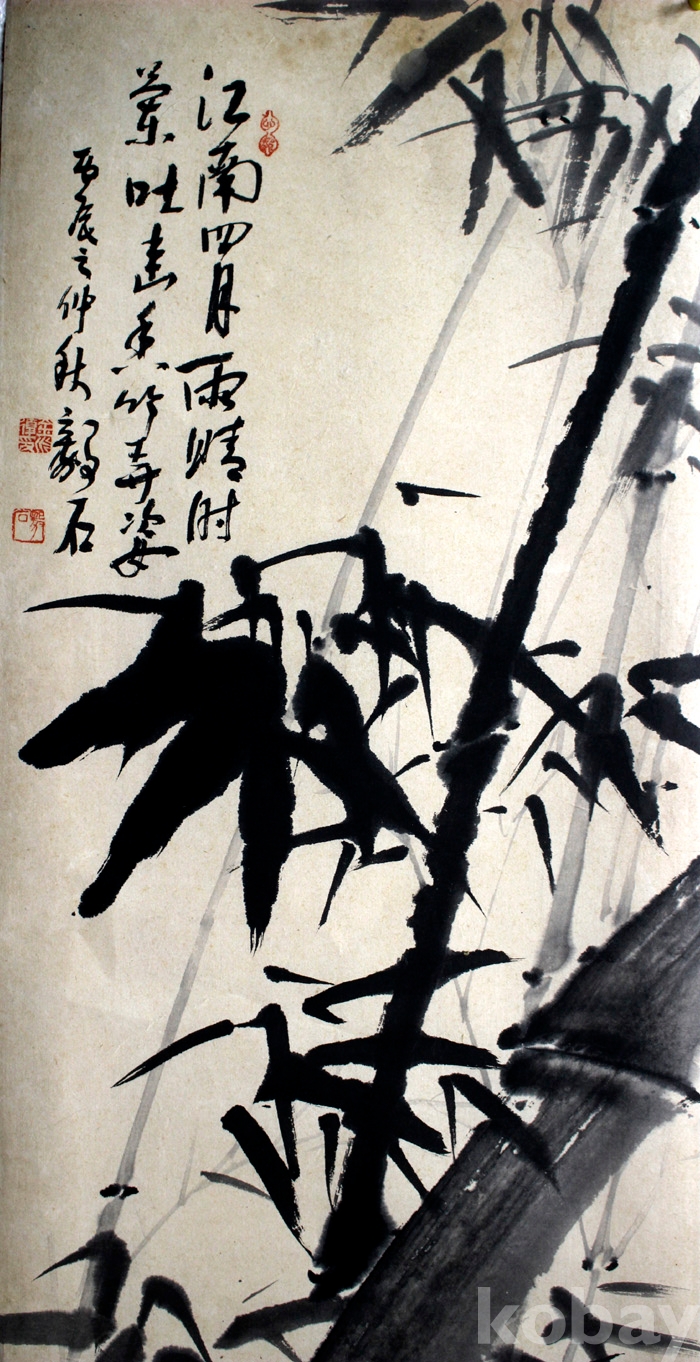 江南四月雨晴時
蘭吐幽香竹弄姿
丙辰之仲秋 毅石
kobay